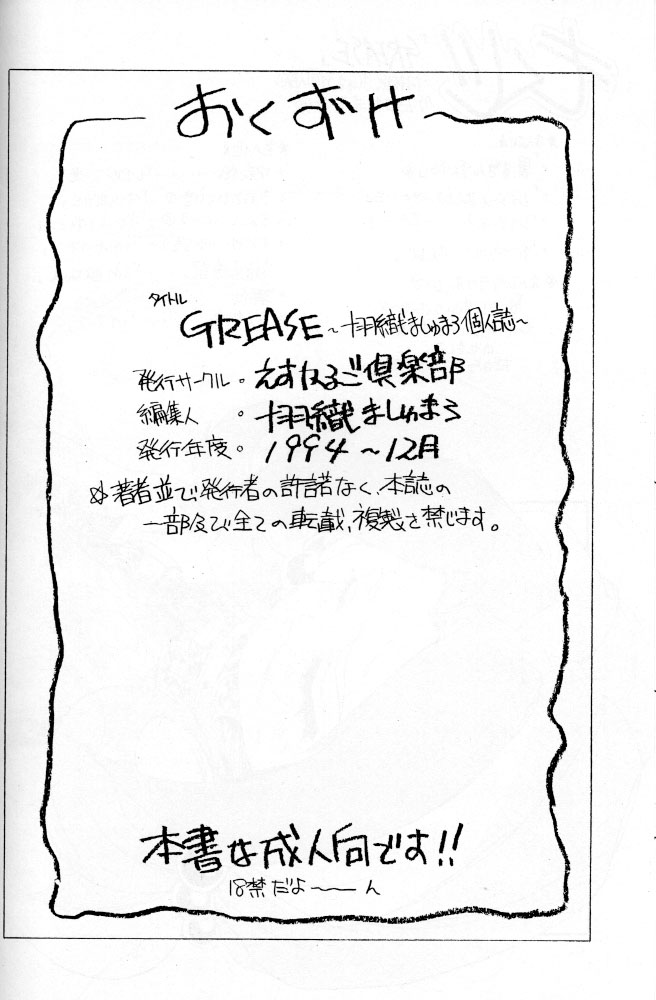 おくずけ
タイトル
GREASE ~羽織ましゅまろ個人誌~
発行サークル・えすけるご倶楽部
編集人・羽織ましゅまろ
発行年度。1994~12月
※著者並びに発行者の許諾なく、本誌の
一部及び全ての転載、複製を禁じます。
本書は成人向です!!
18禁だよ~ん